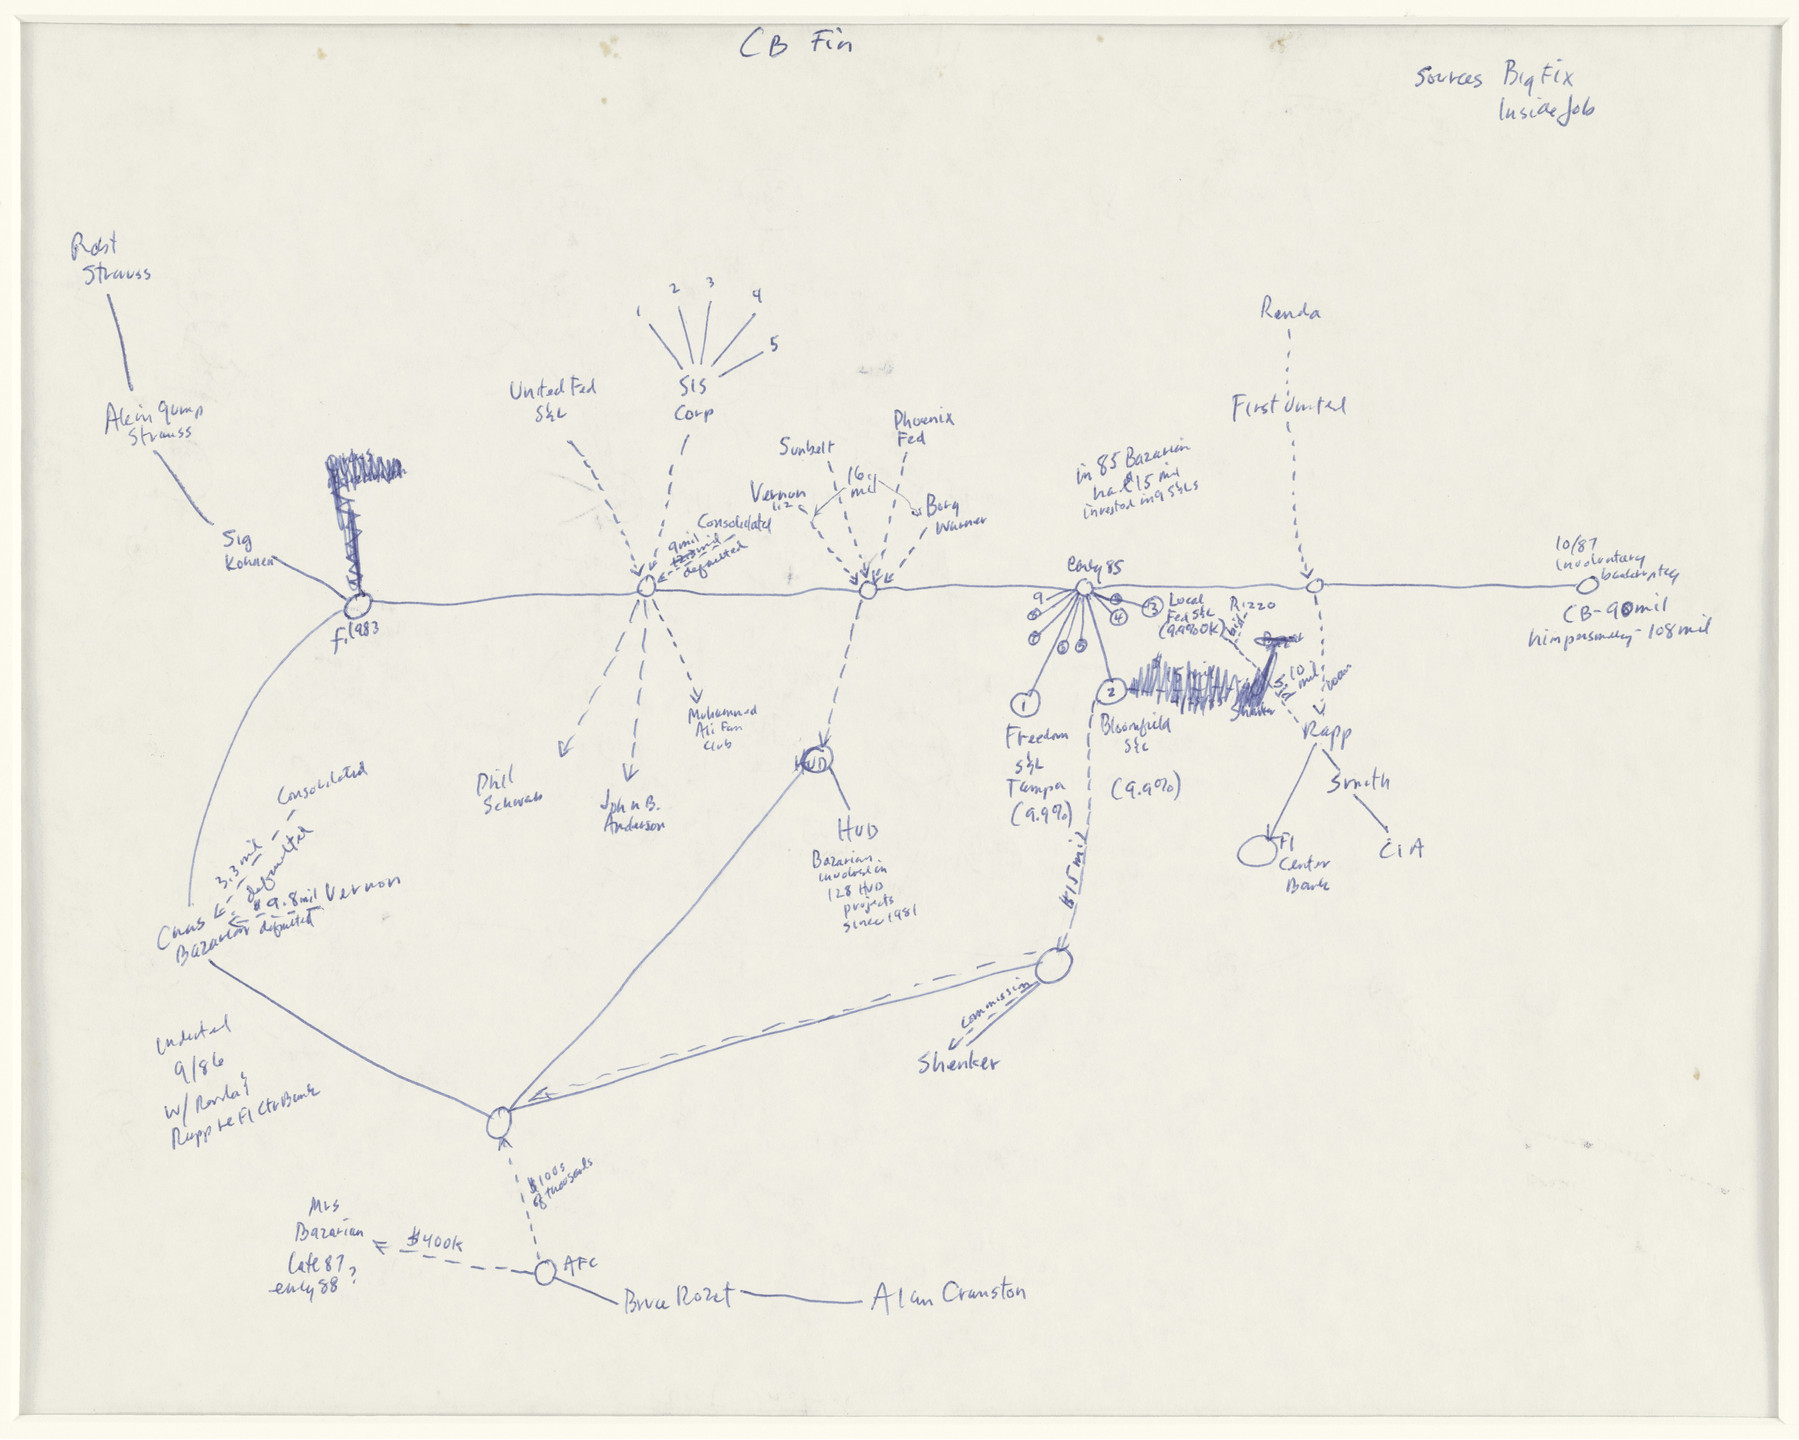 CB Fin
Sources Big Fix
Inside Job
Robt
Strauss
Akin Gump
Strauss
Sig
Kohnen
f. 1983
United Fed
S&L
1
2
3
4
5
SIS
Corp
Consolidated
9mil
defaulted
Sunbelt
Phoenix
Fed
16
mil
Vernon
Borg
Warner
in 85 Bazarian
had 15 mil
invested in 9 S&Ls
Early 85
Renda
First United
10/87
involuntary
bankruptcy
CB-90mil
him personally-108mil
9
4
3
Local
Fed S&L
(9.9% OK)
Rizzo
1
Freedom
S&L
Tampa
(9.9%)
2
Bloomfield
S&L
(9.9%)
Shenker
10
mil
Rapp
Smith
CIA
Fl
Center
Bank
Phil
Schwab
John B.
Anderson
Muhammad
Ali Fan
Club
HUD
HUD
Bazarian
involved in
128 HUD
projects
since 1981
$15 mil
commission
Shenker
Consolidated
3.3 mil
defaulted
$9.8mil Vernon
defaulted
Bazarian
Indicted
9/86
w/ Renda &
Rapp re Fl Ctr Bank
$100s
of thousands
Mrs
Bazarian
late 87
early 88?
$400K
AFC
Bruce Rozet
Alan Cranston